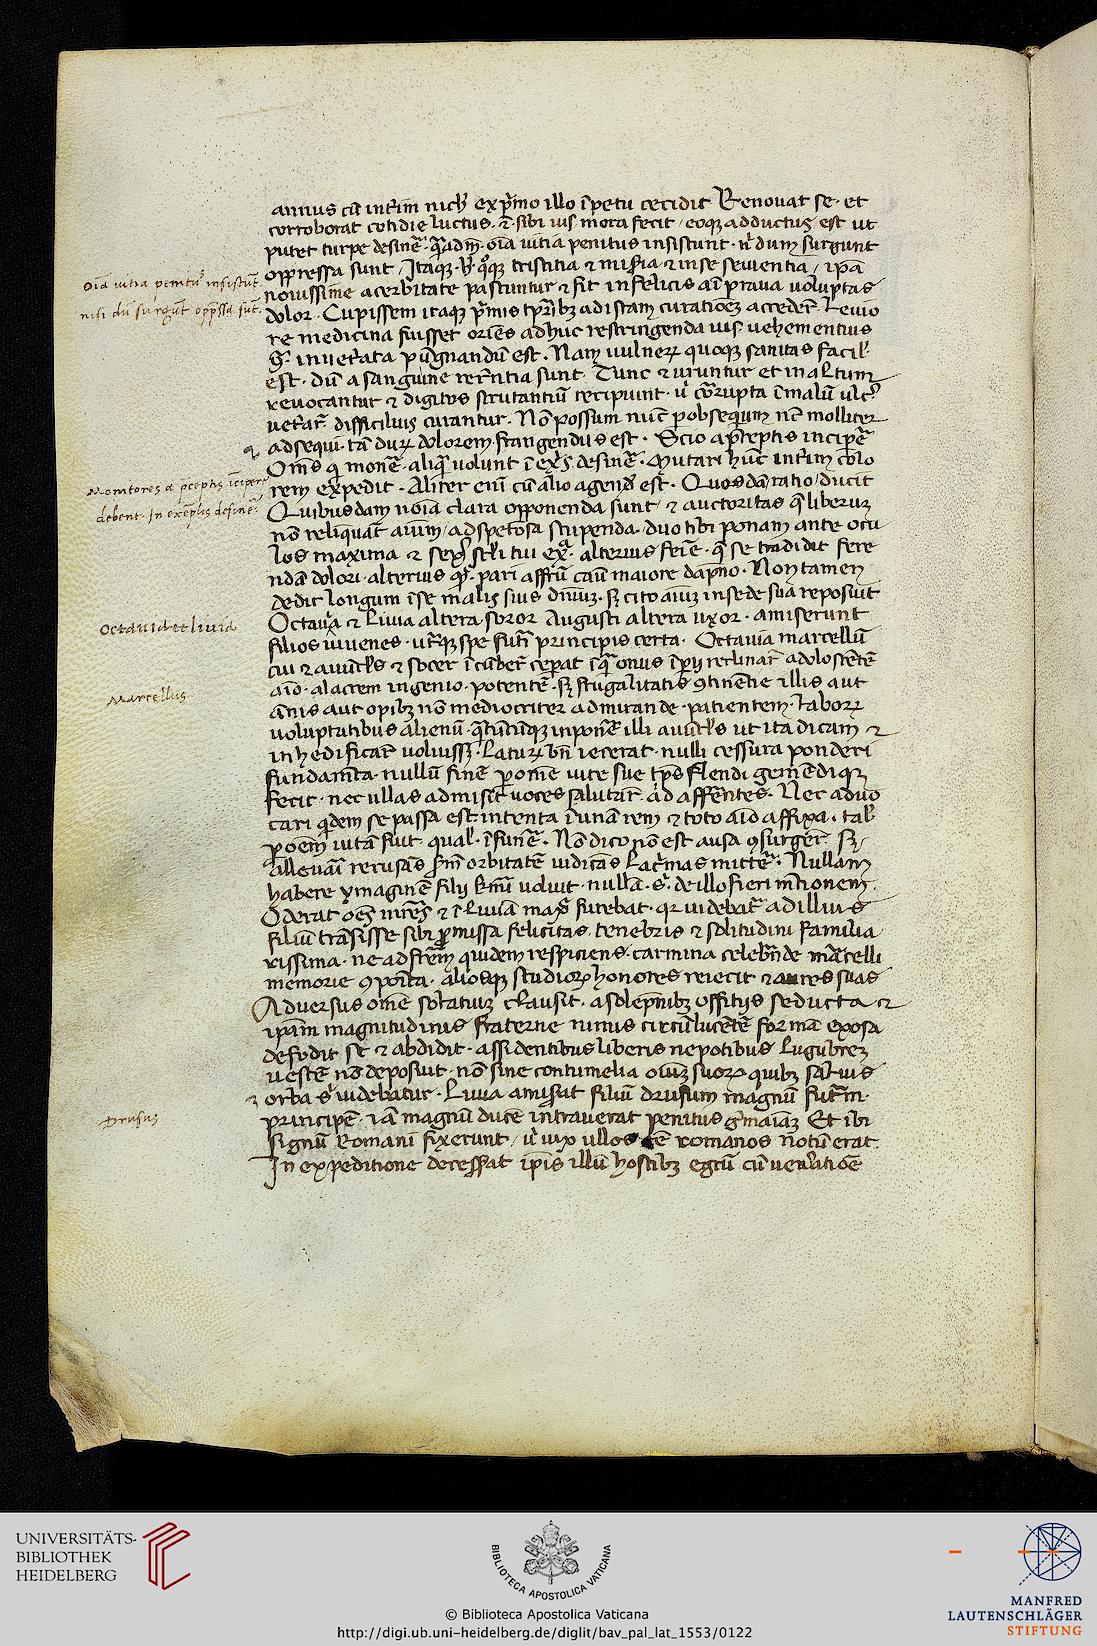 annus cū int̄im nich̓ ex p̄mo illo īpetu cecidit Renouat se · et
corroborat cotidie luctus · ⁊ sibi ius mora fecit / eoqꝫ adductus est ut
putet turpe desinē · q̄ādm̄ · oīa vitia penitus insistunt · n̄ dum surgunt
oppressa sunt / Itaqꝫ · h̓ · q̊qꝫ tristitia ⁊ mis̄ia ⁊ in se seuientia / ip̄a
nouissime acerbitate pascuntur ⁊ fit infelicis aī praua uoluptas
dolor · Cupissem itaqꝫ p̄mis tp̄ribꝫ ad istam curatiōeꝫ accedēr̄ · Leuio
re medicina fuisset oriēs adhuc restringenda uis uehementius
g̊ · inueterata pūgnandū est · Nam uulneꝝ quoqꝫ sanitas facil̓
est · dū a sanguine rec̄ntia sunt · Tunc ⁊ uruntur et in altum
reuocantur ⁊ digitos scrutantiū recipiunt · u̓ cōrupta ī malū ulc̓
uet̄at̄ difficilius curantur · Nō possum nūc p obsequium nec̄ molliter
adsequi · tā duꝝ dolorem · frangendus est · Scio a p̄ceptis incipē
Oms̄ q monē · aliqͣ uolunt ī ex̓s desinē · Mutari hūc int̄im colo
rem expedit · Aliter enī cū alio agend̄ est · Quosdā ratio / ducit
Quibusdam noīa clara opponenda sunt · ⁊ auctoritas q̄ liberuꝫ
nō reliquat̄ aīum / ad speciosa stupenda · duo tibi ponam ante ocu
los maxima ⁊ sex̓ scl̓i tui ex̄ͣ · alterius feīe · q̄ se tradidit fere
ndā dolori · alterius q̄ · pari affc̄ū cāu maiore dapno · Non tamen
dedit longum ī se malis suis dn̄iuꝫ · sꝫ cito aīuꝫ in sede sua reposuit
Octauia ⁊ Liuia altera soror Augusti altera uxor · amiserunt
filios iuuenes · utr̄qꝫ spe futī principis certa · Octauia marcellū
cui ⁊ auūcl̓s ⁊ socer īcūber̄ cepat ī qͣ onus īpij reclinar̄ adolescētē
aīo · alacrem ingenio · potentē · sꝫ frugalitatis ꝯtinētie illis aut
ānis aut opibꝫ nō mediocriter admirande · patientem · laboꝝ
uoluptatibus alienū · q̄tūcūqꝫ inponē illi auūcl̓s ut ita dicam ⁊
inhedificar̄ uoluissꝫ · Latuꝝ · bn̄ iecerat · nulli cessura ponderi
fundam̄ta · nullū finē p om̄e uite sue tp̄s flendi gemēdiqꝫ
fecit · nec ullas admisit uoces salutar̄ · ad affērntes · Nec aduo
cari qͥdem se passa est intenta ī unā rem ⁊ toto aīo affixa · tal̓
p oēm uitā fuit · qual̓ · ī funē · Nō dico nō est ausa ꝯsurger̄ · sꝫ
alleuaī recusās s̄m orbitatē iudicās Lacr̄mas mittē · Nullam
habere ymaginē filij k̄mi uoluit · nullā · s̓ · de illo fieri m̄tionem
Oderat oēs mr̄ēs ⁊ ī Liuiā maxͤ furebat · qꝛ uidebat̄ ad illius
filiū trāsisse sibi p̄missa felicitas · tenebris ⁊ solitudini familia
rissima · ne ad fr̄em quidem respiciens · carmina celebr̄nde marcelli
memorie ꝯpoīta · aliosqꝫ studioꝝ honores reiecit ⁊ aures suas
Aduersus om̄e solatiuꝫ clausit · a solepnibꝫ offitijs seducta ⁊
ipām magnitudinis fraterne nimis circūlucētē formā exosa
defodit se ⁊ abdidit · assidentibus liberis nepotibus lugubreꝫ
uestē nō deposuit · nō sine contumelia oīuꝫ suoꝝ quibꝫ saluis
orba s̓ uidebatur · Liuia amis̄at filiū drusum magnū futm̄
principē · iā magnū ducē intrauerat penitus ḡmaīaꝫ Et ibi
signū Romani fixerunt / u̓ uix ullos ēē romanos notū erat
In expeditione decesserat ip̄is illū hostibꝫ egrū cū ueneratiōe
oīa uitia penitus īsistūt
nisi dū surgūt opp̄ssa sūt
Monitores a p̄ceptis īcipere
debent · In exēplis desinē
Octauia et liuia
Marcellus
Drusus
UNIVERSITÄTS-
BIBLIOTHEK
HEIDELBERG
BIBLIOTECA APOSTOLICA VATICANA
© Biblioteca Apostolica Vaticana
http://digi.ub.uni-heidelberg.de/diglit/bav_pal_lat_1553/0122
MANFRED
LAUTENSCHLÄGER
STIFTUNG